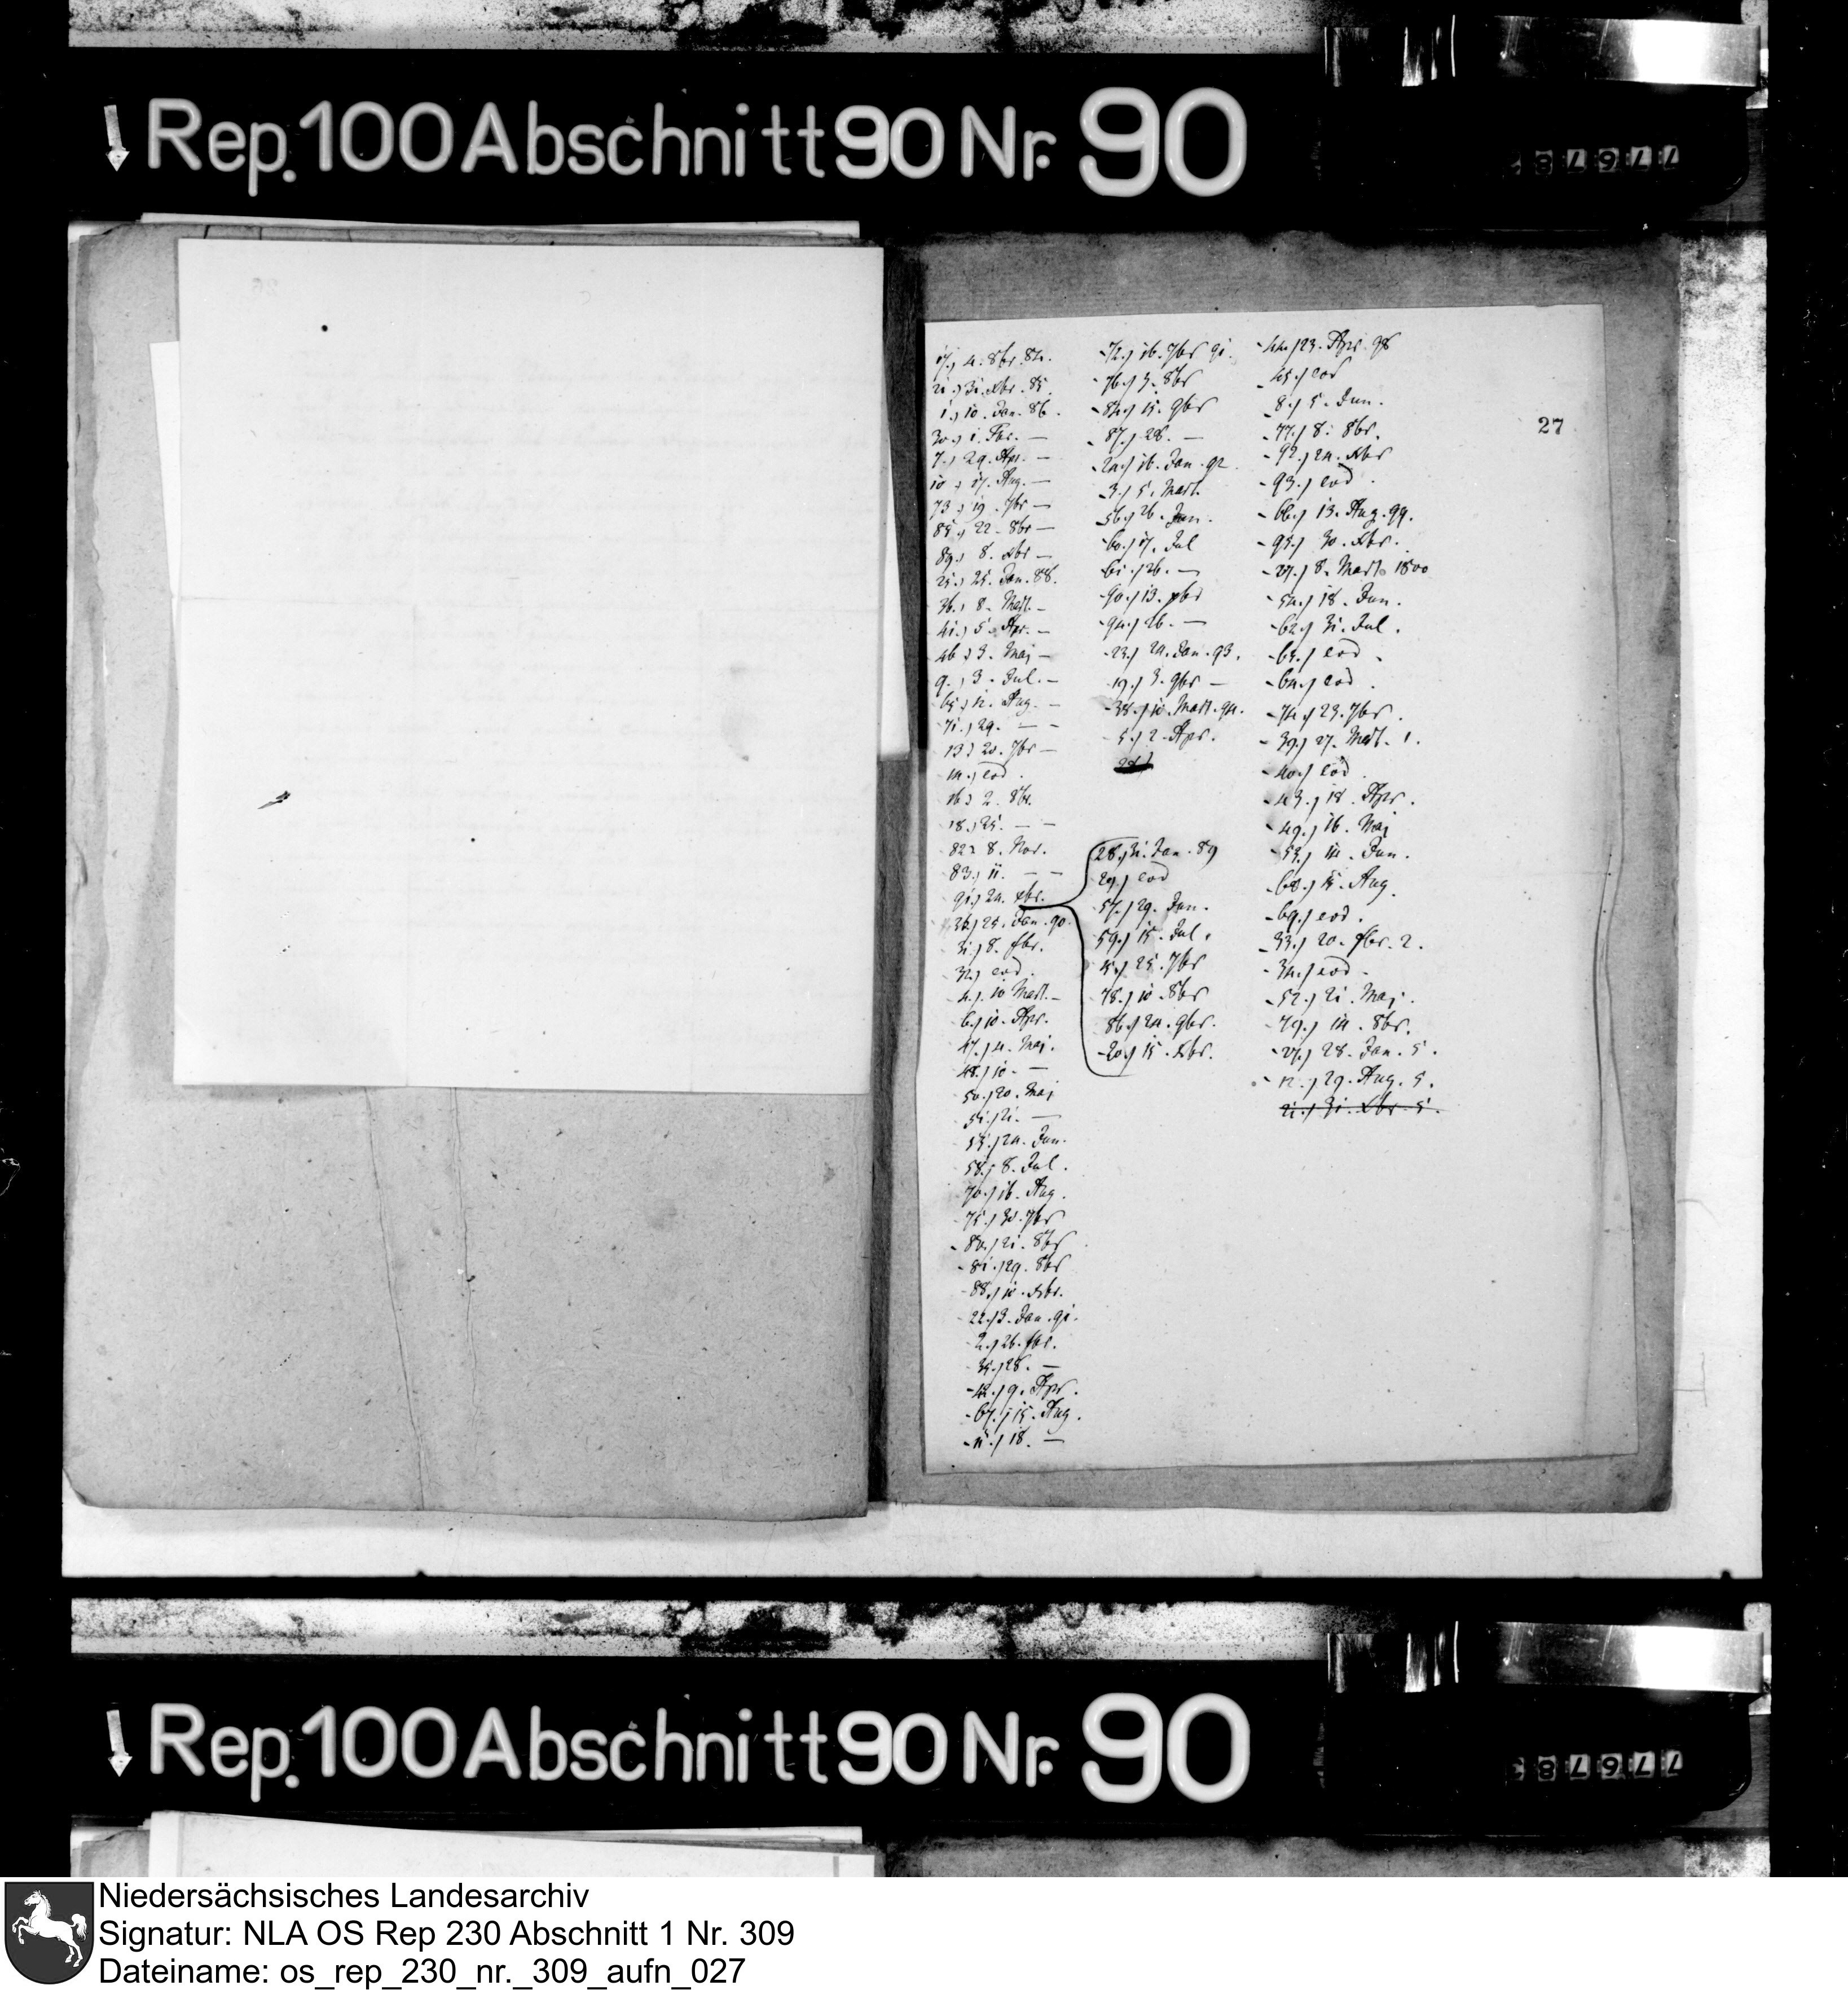 Rep. 100 Abschnitt 90 Nr. 90
77678
27
17.) 4. 8br. 84.
21.) 31. Xbr. 85.
1.) 10. Jan. 86.
30.) 1. Febr. —
7.) 29. Apr. —
10.) 17. Aug. —
73.) 19. 7br —
85.) 22. 8br —
89.) 8. Xbr —
25.) 25. Jan. 88.
36.) 8. Mart. —
41.) 5. Apr. —
46.) 3. Maj —
9.) 3. Jul. —
65.) 12. Aug. —
71.) 29. — —
13.) 20. 7br —
14.) eod.
16.) 2. 8br.
18.) 25. — —
82.) 8. Nov.
83.) 11. — —
91.) 24. Xbr.
26.) 25. Jan. 90.
31.) 8. fbr.
32.) eod.
4.) 10 Mart. —
6.) 10. Apr.
47.) 4. Maj.
48.) 10. —
50.) 20. Maj
51.) 21. —
15.) 24. Jun.
58.) 8. Jul.
70.) 16. Aug.
75.) 30. 7br
- 80.) 21. 8br
- 81.) 29. 8br
- 88.) 10. Xbr.
- 22.) 3. Jan. 91.
- 2.) 26. fbr.
- 35.) 28. —
- 42.) 9. Apr.
- 67.) 15. Aug.
- 11.) 18. —
- 72.) 16. 7br 91.
- 76.) 3. 8br
- 84.) 15. 9br
- 87.) 28. —
- 24.) 16. Jan. 92.
- 3.) 5. Mart.
- 56.) 26. Jun.
- 60.) 17. Jul
61.) 26. —
- 90.) 13. Xbr
- 94.) 26. —
- 23.) 24. Jan. 93.
19.) 3. 9br —
- 38.) 10. Mart. 94.
- 5.) 2. Apr.
28.) 31. Jan. 89
29.) eod
57.) 29. Jun.
59.) 15. Jul.
25. 7br
78.) 10. 8br
86.) 24. 9br.
- 20.) 15. Xbr.
- 44.) 23. Apr. 98
- 45.) eod
- 8.) 5. Jun.
- 77.) 8. 8br.
- 92.) 24. Xbr
- 93.) eod.
- 66.) 13. Aug. 99.
- 95.) 30. Xbr.
- 37.) 8. Mart. 1800
- 54.) 18. Jun.
- 62.) 31. Jul.
- 63.) eod.
- 64.) eod.
- 74.) 23. 7br.
- 39.) 27. Mart. 1.
- 40.) eod.
- 43.) 18. Apr.
- 49.) 16. Maj
- 53.) 14. Jun.
- 68.) 15. Aug.
- 69.) eod.
- 33.) 20. fbr. 2.
- 34.) eod.
- 52.) 21. Maj.
- 79.) 14. 8br.
- 27.) 28. Jan. 5.
- 12.) 29. Aug. 5.
21.) 31. Xbr. 5.
Rep. 100 Abschnitt 90 Nr. 90
77678
Niedersächsisches Landesarchiv
Signatur: NLA OS Rep 230 Abschnitt 1 Nr. 309
Dateiname: os_rep_230_nr._309_aufn_027